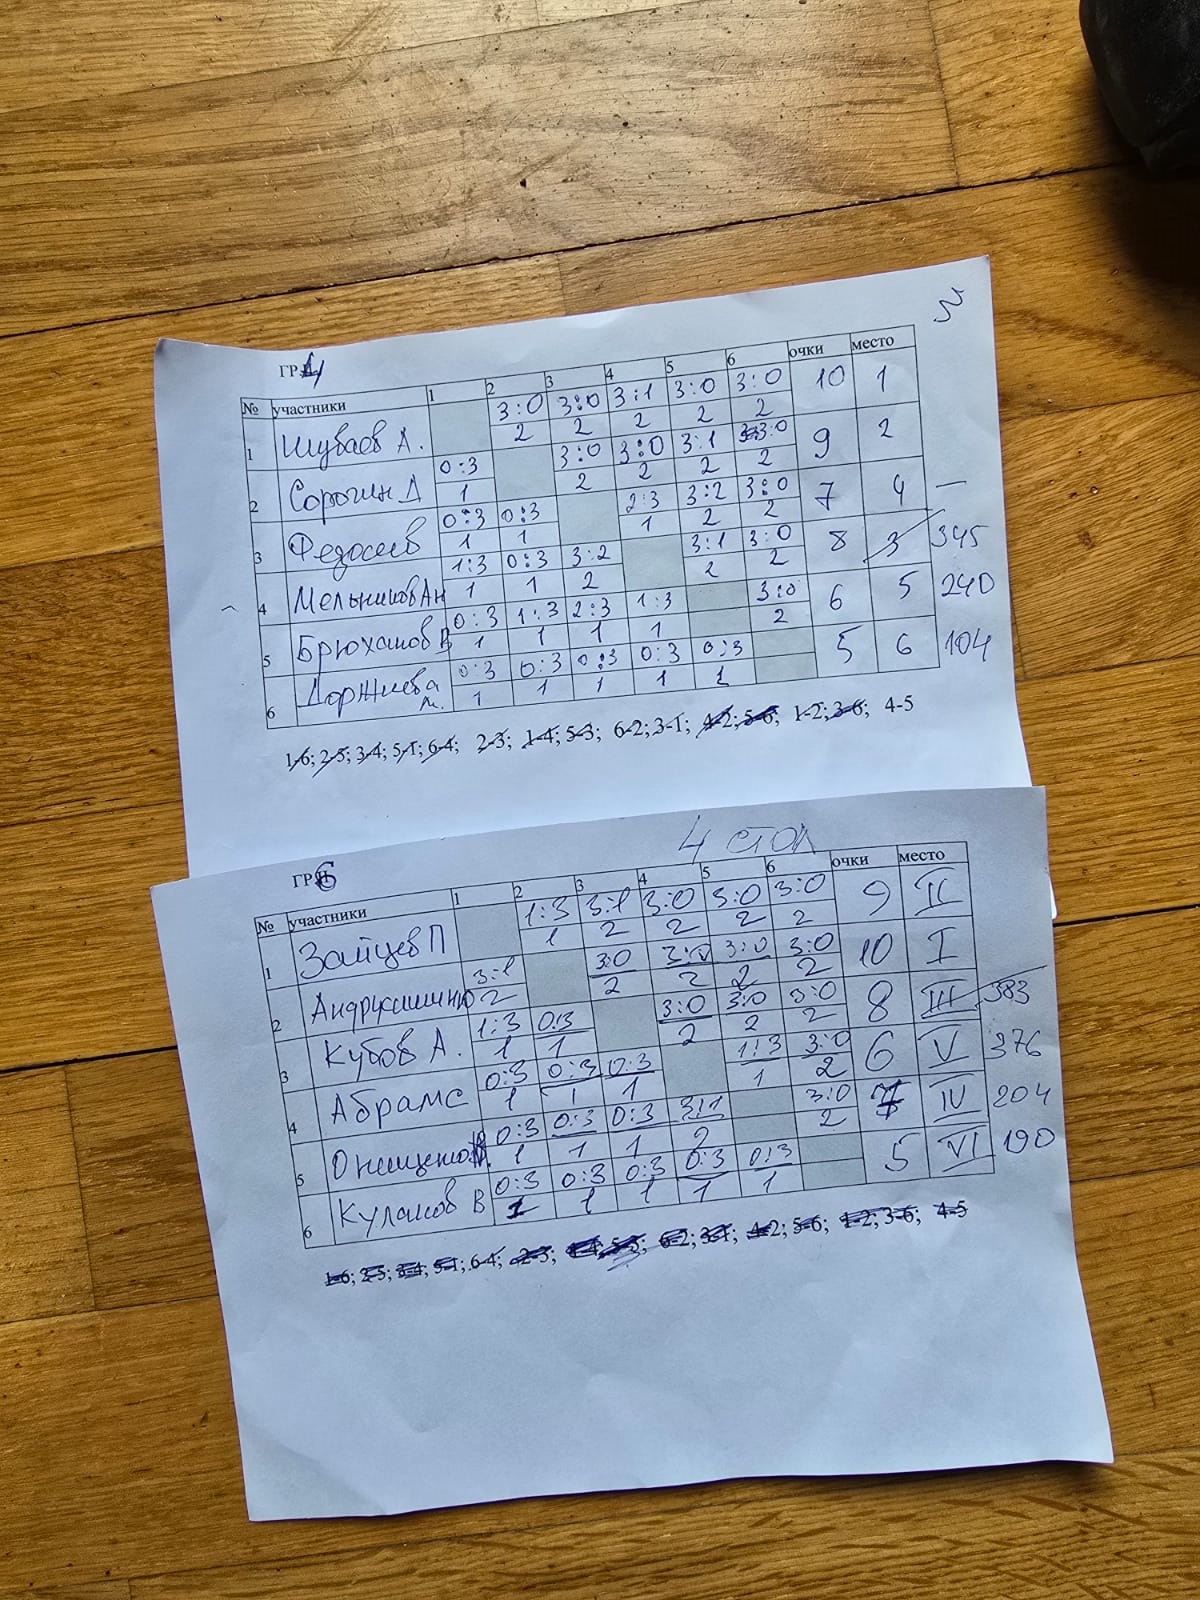 ГР.
№ участники 1 2 3 4 5 6 очки место
1 Шубаев А. 3:0 3:0 3:1 3:0 3:0 10 1
2 2 2 2 2
2 Сорокин Д 0:3 3:0 3:0 3:1 3:0 9 2
1 2 2 2 2
3 Федосеев 0:3 0:3 2:3 3:2 3:0 7 4 —
1 1 1 2 2
4 Мельников Ан 1:3 0:3 3:2 3:1 3:0 8 3 345
1 1 2 2 2
5 Брюханов В 0:3 1:3 2:3 1:3 3:0 6 5 240
1 1 1 1 2
6 Доржиева м. 0:3 0:3 0:3 0:3 0:3 5 6 104
1 1 1 1 1
1-6; 2-5; 3-4; 5-1; 6-4; 2-3; 1-4; 5-3; 6-2; 3-1; 4-2; 5-6; 1-2; 3-6; 4-5
4 СТОЛ
ГР. 6
№ участники 1 2 3 4 5 6 очки место
1 Зайцев П 1:3 3:1 3:0 3:0 3:0 9 II
1 2 2 2 2
2 3:1 3:0 3:0 3:0 3:0 10 I
2 2 2 2 2
3 Кубов А. 1:3 0:3 3:0 3:0 3:0 8 III 383
1 1 2 2 2
4 Абрамс 0:3 0:3 0:3 1:3 3:0 6 V 376
1 1 1 1 2
5 0:3 0:3 0:3 3:1 3:0 7 IV 204
1 1 1 2 2
6 Кулаков В 0:3 0:3 0:3 0:3 0:3 5 VI 190
1 1 1 1 1
1-6; 2-5; 3-4; 5-1; 6-4; 2-3; 1-4; 5-3; 6-2; 3-1; 4-2; 5-6; 1-2; 3-6; 4-5